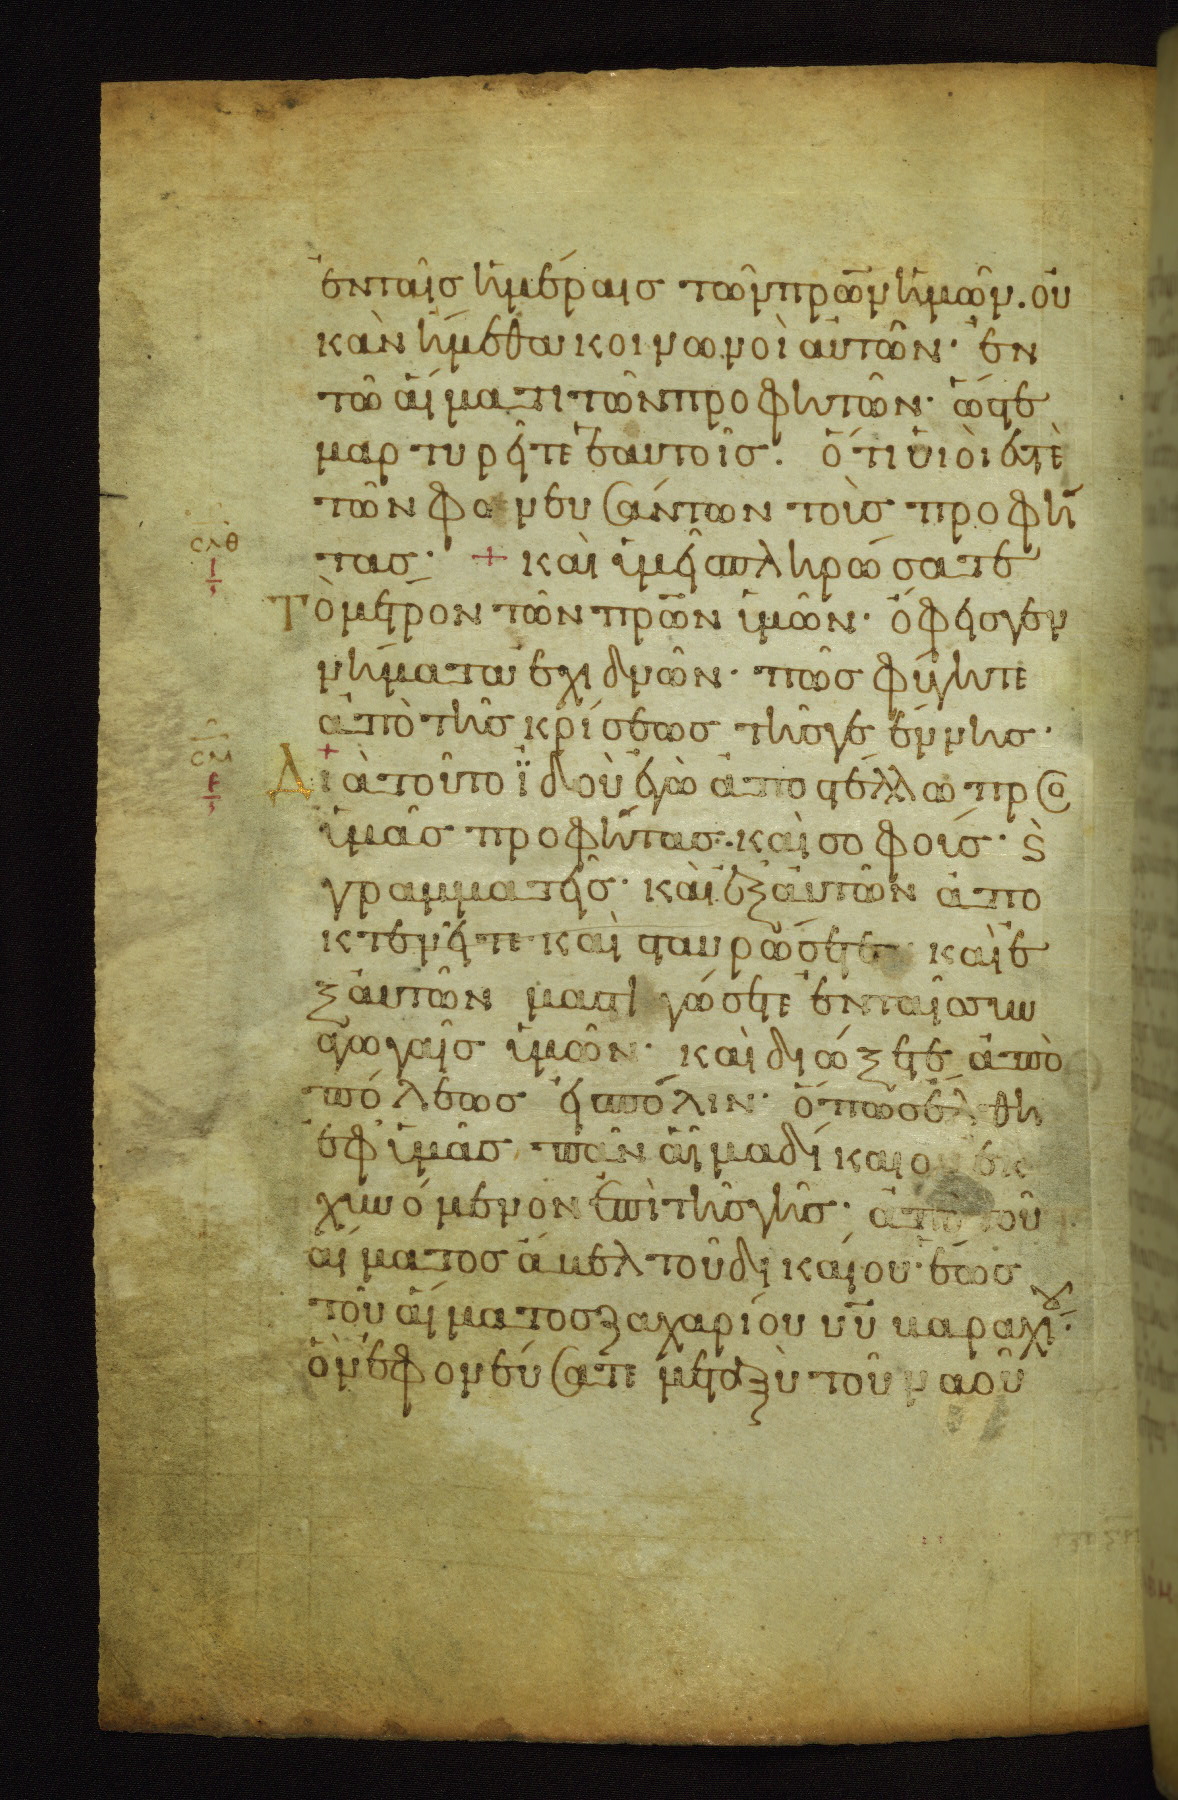 ἐν ταῖς ἡμέραις τῶν πρω̅ν ἡμῶν. οὐ
κὰν ἤμεθα κοινωνοὶ αὐτῶν· ἐν
τῶ αἵματι τῶν προφητῶν· ὥστε
μαρτυρεῖτε ἑαυτοῖς. ὅτι υἱοί ἐστὲ
τῶν φονευσάντων τοὺς προφή
τας· + καὶ ὑμεῖς πληρώσατε
σλθ
ι
ς
Τὸ μέτρον τῶν πρω̅ν ὑμῶν· ὄφεις γεν
νήματα ἐχιδνῶν· πῶς φύγητε
ἀπὸ τῆς κρίσεως τῆς γεέννης·
σμ
ε
ς
Διὰ τοῦτο ἰδοὺ ἐγὼ ἀποστέλλω πρὸς
ὑμᾶς προφήτας· καὶ σοφούς· ϗ
γραμματεῖς· καὶ ἐξ αὐτῶν ἀπο
κτενεῖτε καὶ σταυρώσετε καὶ ἐ
ξ αὐτῶν μαστιγώσετε ἐν ταῖς συν
αγωγαῖς ὑμῶν· καὶ διώξετε ἀπὸ
πόλεως εἰς πόλιν· ὅπως ἔλθη
ἐφ ὑμᾶς πᾶν αἷμα δίκαιον ἐκ
χυνόμενον ἐπὶ τῆς γῆς· ἀπὸ τοῦ
αἵματος ἄβελ τοῦ δικαίου· ἕως
τοῦ αἵματος ζαχαρίου υυ̅ βαραχίου·
ὃν ἐφονεύσατε μεταξὺ τοῦ ναοῦ